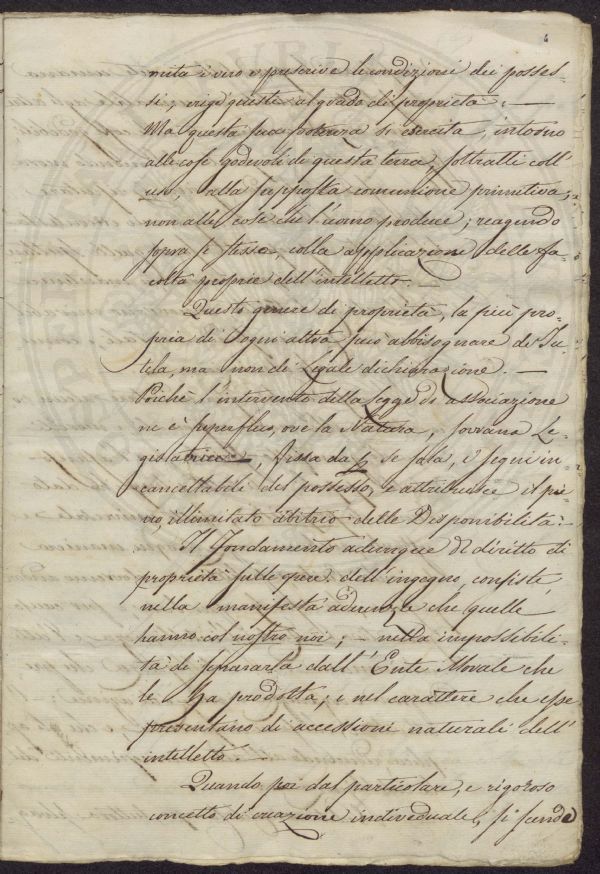 6
mita i vero e prescrive le condizioni dei posses-
si; erige questi al grado di proprietà. —
Ma questa sua potenza si esercita, intorno
alle cose godevoli di questa terra, sottratti coll'
uso, alla supposta comunione primitiva;
non alle cose che l'uomo produce; reagendo
sopra se stesso, colla applicazione delle fa-
coltà proprie dell'intelletto. —
Questo genere di proprietà, la più pro-
pria di ogni altra può abbisognare di Tu-
tela, ma non di Legale dichiarazione. —
Poichè l'intervento della Legge di associazione
ne è superfluo, ove la Natura, sovrana Le-
gislatrice, fissa da se sola, i segni in-
cancellabili del possesso, e attribuisce il pie-
no, illimitato arbitrio delle Disponibilità. —
Il fondamento adunque del diritto di
proprietà sulle opere dell'ingegno, consiste,
nella manifesta aderenza che quelle
hanno col nostro noi; — nella impossibili-
tà di separarla dall'Ente Morale che
le ha prodotta; e nel carattere che esse
presentano di accessioni naturali dell'
intelletto. —
Quando poi dal particolare, e rigoroso
concetto di creazione individuale, si scende